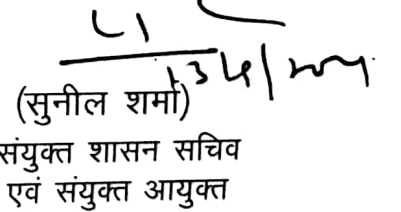 (सुनील शर्मा)
संयुक्त शासन सचिव
एवं संयुक्त आयुक्त